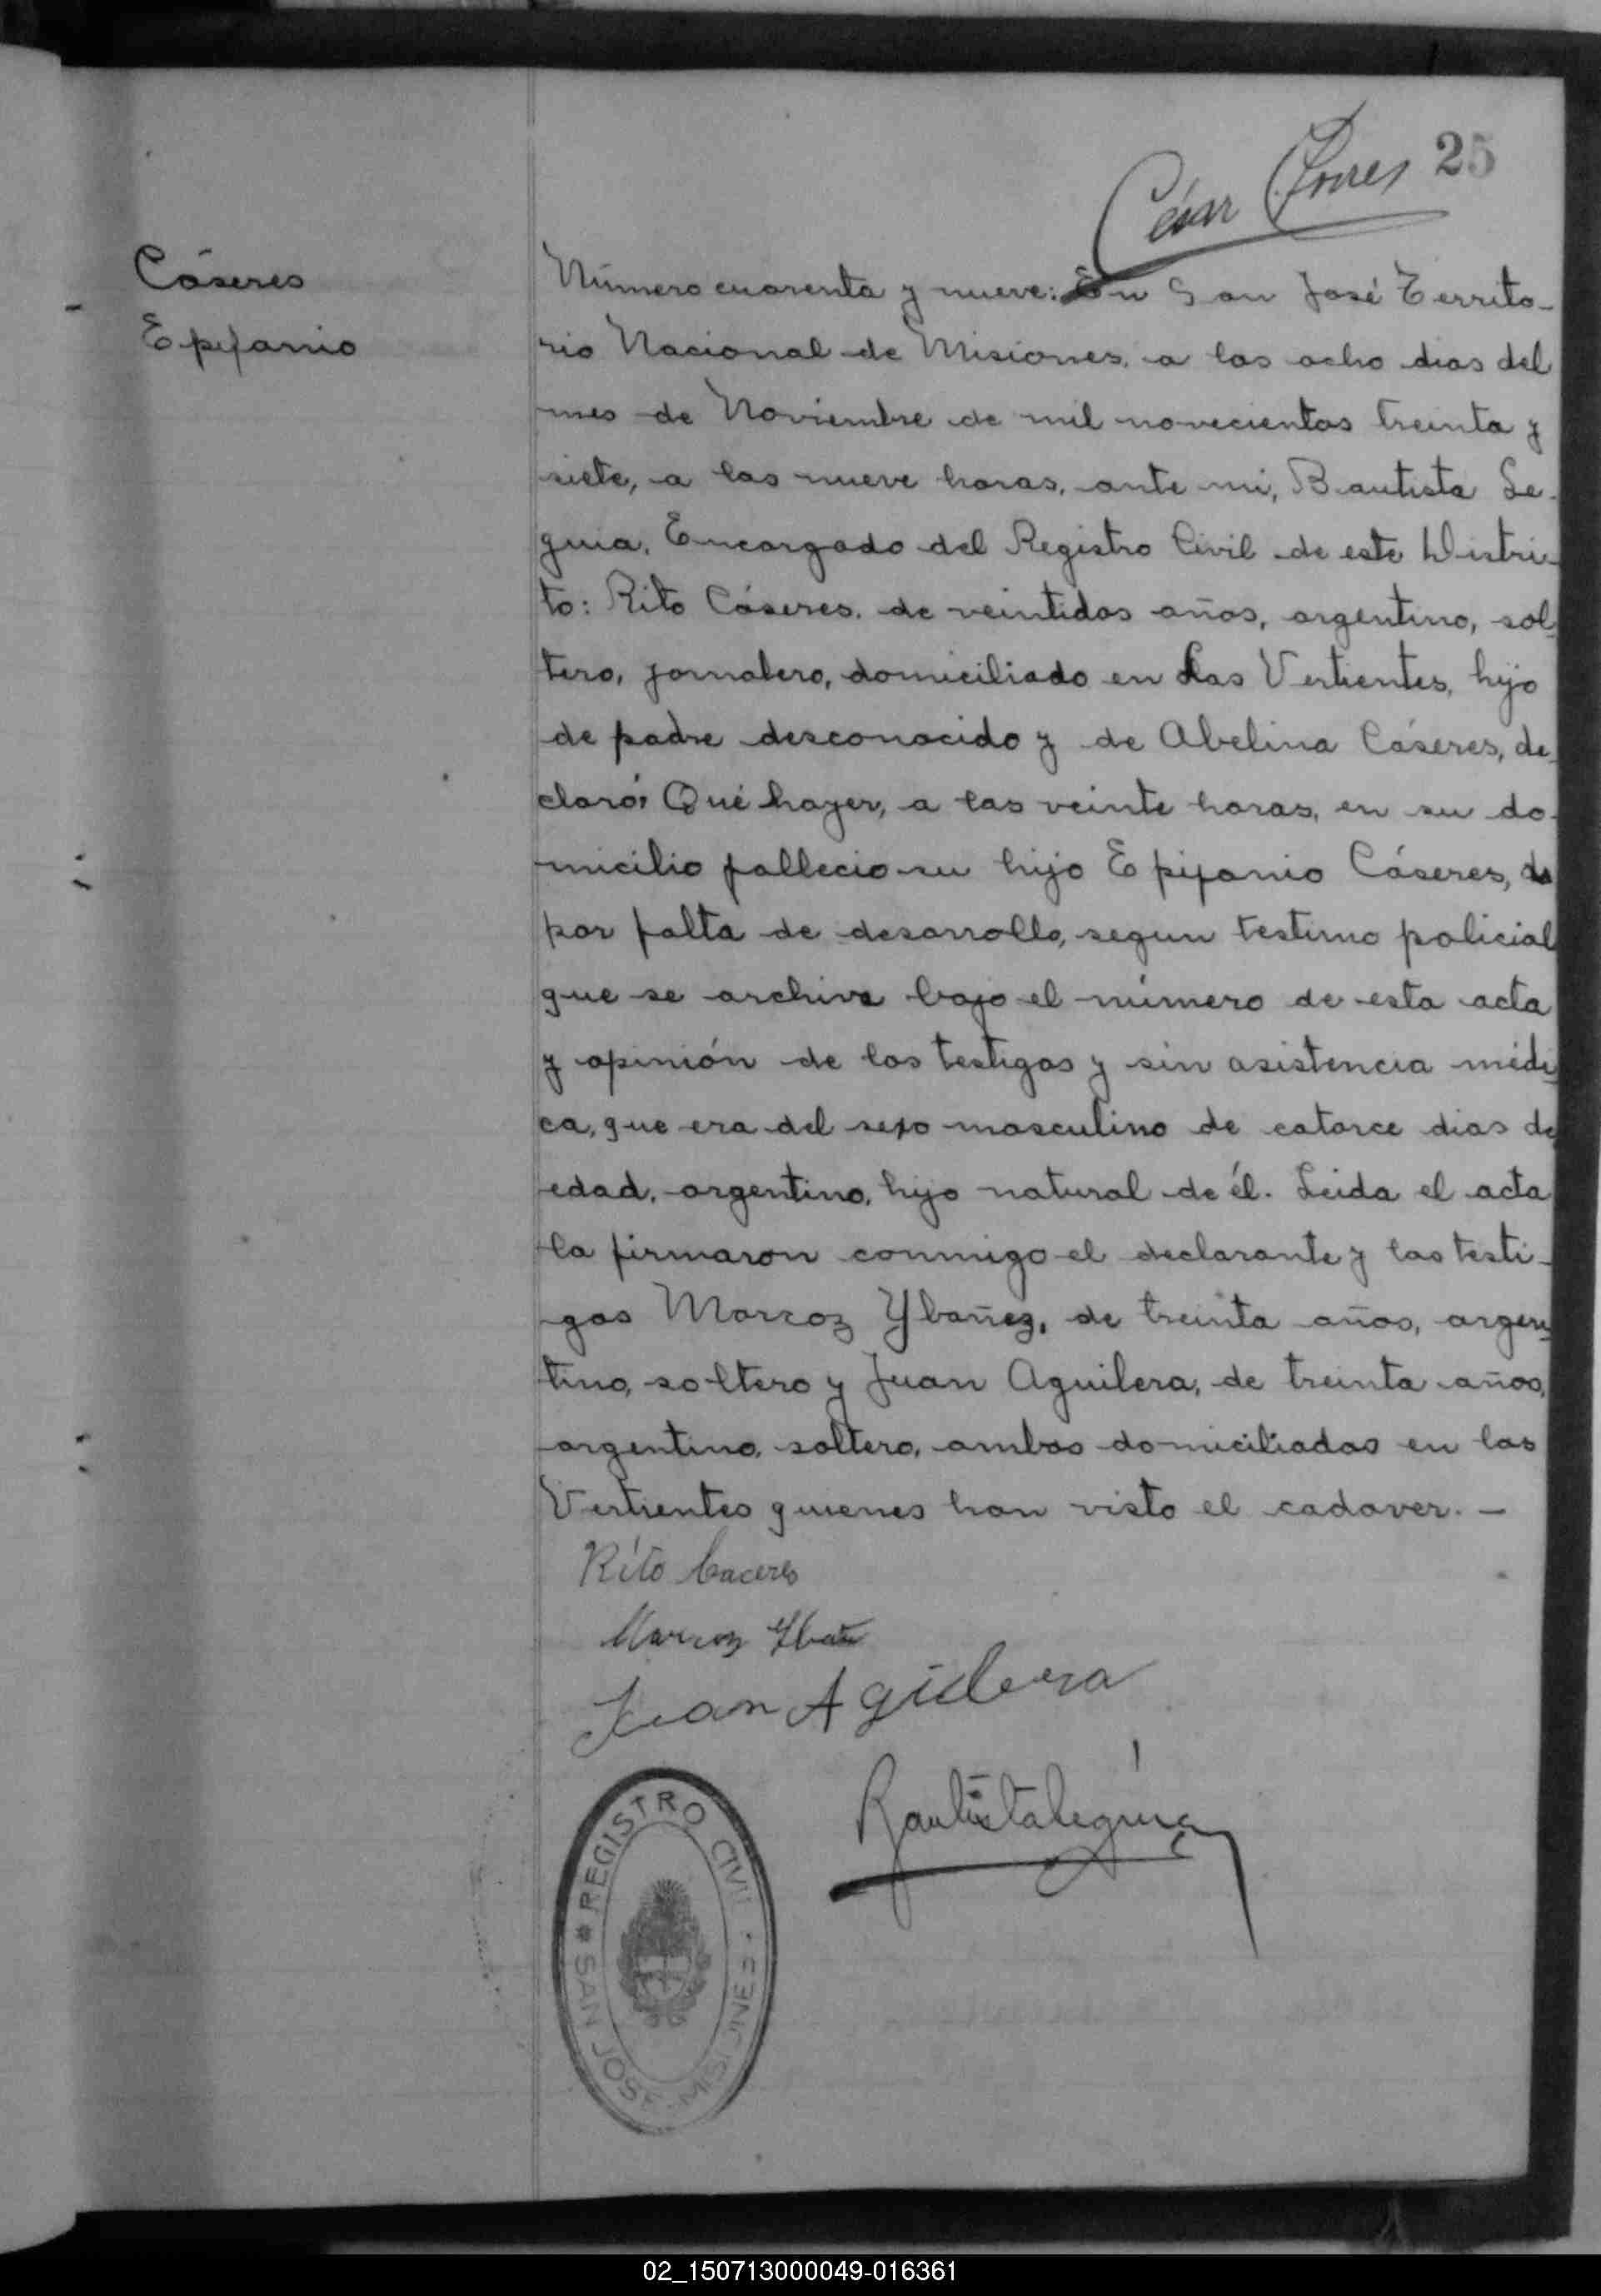 César Torres 25
Cáseres
Epifanio
Número cuarenta y nueve: En San José Territo-
rio Nacional de Misiones, a los ocho dias del
mes de Noviembre de mil novecientos treinta y
siete, a las nueve horas, ante mi, Bautista Le-
guia, Encargado del Registro Civil de este Distri-
to: Rito Cáseres, de veintidos años, argentino, sol-
tero, jornalero, domiciliado en Las Vertientes, hijo
de padre desconocido y de Abelina Cáseres, de-
claró: Qué hayer, a las veinte horas, en su do-
micilio fallecio su hijo Epifanio Cáseres,
por falta de desarrollo, segun testimo policial
que se archiva bajo el número de esta acta
y opinión de los testigos y sin asistencia médi-
ca, que era del sexo masculino de catorce dias de
edad, argentino, hijo natural de él. Leida el acta
la firmaron conmigo el declarante y los testi-
gos Marcoz Ybañez, de treinta años, argen-
tino, soltero y Juan Aguilera, de treinta años,
argentino, soltero, ambos domiciliados en las
Vertientes quienes han visto el cadaver. -
Rito Caceres
Marcoz
Juan Agilera
Bautista Leguia
REGISTRO CIVIL
* SAN JOSE - MISIONES -
02_150713000049-016361